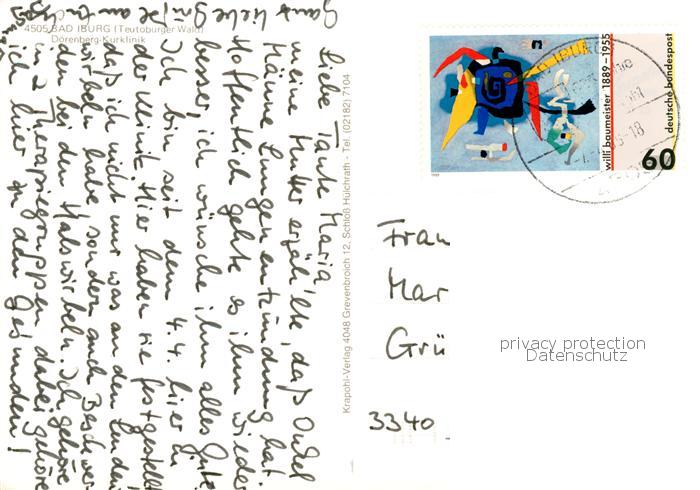 4505 BAD IBURG (Teutoburger Wald)
Dörenberg-Kurklinik
Liebe Tante Maria,
meine Mutter erzählte, daß Onkel
Männe Lungenentzündung hat.
Hoffentlich geht es ihm wieder
besser, ich wünsche ihm alles Gute.
Ich bin seit dem 4.4. hier in
der Klinik. Hier haben sie festgestellt
daß ich nicht nur was an den Lenden
wirbeln habe sondern auch Beschwer
den bei den Halswirbeln. Ich gehöre
in 2 Therapiegruppen, dabei gehöre
ich hier zu den Gesunden!
Ganz liebe Grüße
Krapohl-Verlag 4048 Grevenbroich 12, Schloß Hülchrath - Tel. (02182) 7104
willi baumeister 1889-1955
deutsche bundespost
60
-18
Frau
Mar
Grü
3340
privacy protection
Datenschutz